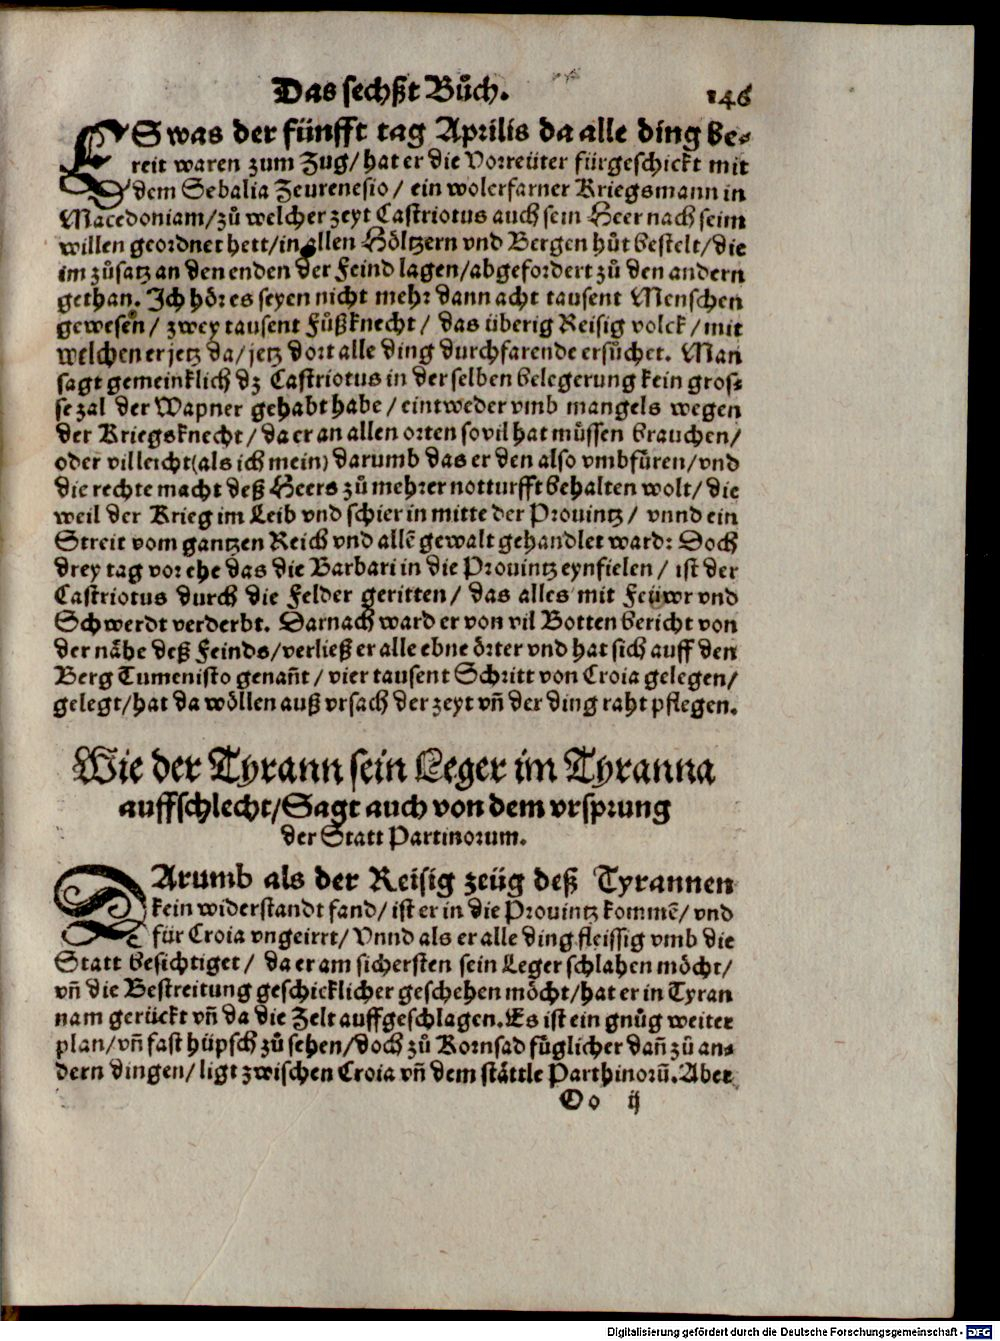 Das sechßt Bůch. 146
ES was der fünfft tag Aprilis da alle ding be-
reit waren zum Zug/ hat er die Vorreüter fürgeschickt mit
dem Sebalia Zeurenesio/ ein wolerfarner Kriegsmann in
Macedoniam/ zů welcher zeyt Castriotus auch sein Heer nach seim
willen geordnet hett/ in allen Höltzern vnd Bergen hůt bestelt/ die
im zůsatz an den enden der Feind lagen/ abgefordert zů den andern
gethan. Ich hör es seyen nicht mehr dann acht tausent Menschen
gewesen/ zwey tausent Fůßknecht/ das überig Reisig volck/ mit
welchen er jetz da/ jetz dort alle ding durchfarende ersůchet. Man
sagt gemeinklich dz Castriotus in der selben belegerung kein gros-
se zal der Wapner gehabt habe/ eintweder vmb mangels wegen
der Kriegsknecht/ da er an allen orten sovil hat müssen brauchen/
oder villeicht (als ich mein) darumb das er den also vmbfüren/ vnd
die rechte macht deß Heers zů mehrer notturfft behalten wolt/ die
weil der Krieg im Leib vnd schier in mitte der Prouintz/ vnnd ein
Streit vom gantzen Reich vnd allẽ gewalt gehandlet ward: Doch
drey tag vor ehe das die Barbari in die Prouintz eynfielen/ ist der
Castriotus durch die Felder geritten/ das alles mit Feüwr vnd
Schwerdt verderbt. Darnach ward er von vil Botten bericht von
der nähe deß Feinds/ verließ er alle ebne örter vnd hat sich auff den
Berg Tumenisto genañt/ vier tausent Schritt von Croia gelegen/
gelegt/ hat da wöllen auß vrsach der zeyt vñ der ding raht pflegen.
Wie der Tyrann sein Leger im Tyranna
auffschlecht/ Sagt auch von dem vrsprung
der Statt Partinorum.
DArumb als der Reisig zeüg deß Tyrannen
kein widerstandt fand/ ist er in die Prouintz kommẽ/ vnd
für Croia vngeirrt/ Vnnd als er alle ding fleissig vmb die
Statt besichtiget/ da er am sichersten sein Leger schlahen möcht/
vñ die Bestreitung geschicklicher geschehen möcht/ hat er in Tyran
nam gerückt vñ da die Zelt auffgeschlagen. Es ist ein gnůg weiter
plan/ vñ fast hüpsch zů sehen/ doch zů Kornsad fůglicher dañ zů an-
dern dingen/ ligt zwischen Croia vñ dem stättle Parthinorũ. Aber
Oo ij
Digitalisierung gefördert durch die Deutsche Forschungsgemeinschaft - DFG